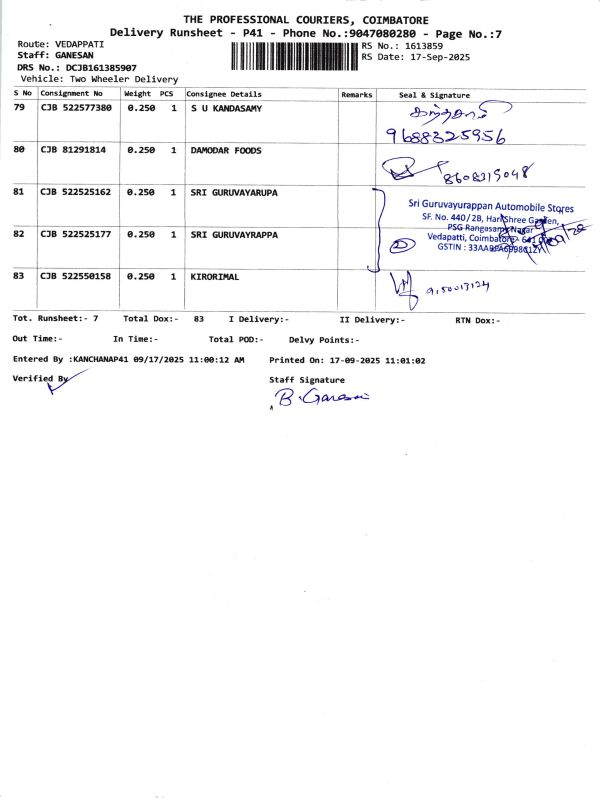 THE PROFESSIONAL COURIERS, COIMBATORE
Delivery Runsheet - P41 - Phone No.:9047080280 - Page No.:7
Route: VEDAPPATI RS No.: 1613859
Staff: GANESAN RS Date: 17-Sep-2025
DRS No.: DCJB161385907
Vehicle: Two Wheeler Delivery
S No Consignment No Weight PCS Consignee Details Remarks Seal & Signature
79 CJB 522577380 0.250 1 S U KANDASAMY
9688325956
80 CJB 81291814 0.250 1 DAMODAR FOODS 8608319048
81 CJB 522525162 0.250 1 SRI GURUVAYARUPA
Sri Guruvayurappan Automobile Stores
SF. No. 440/2B, Hari Shree Garden,
PSG Rangasamy Nagar
82 CJB 522525177 0.250 1 SRI GURUVAYRAPPA 2
Vedapatti, Coimbatore
GSTIN :
83 CJB 522550158 0.250 1 KIRORIMAL 9150013124
Tot. Runsheet:- 7 Total Dox:- 83 I Delivery:- II Delivery:- RTN Dox:-
Out Time:- In Time:- Total POD:- Delvy Points:-
Entered By :KANCHANAP41 09/17/2025 11:00:12 AM Printed On: 17-09-2025 11:01:02
Verified By Staff Signature
B. Ganesan